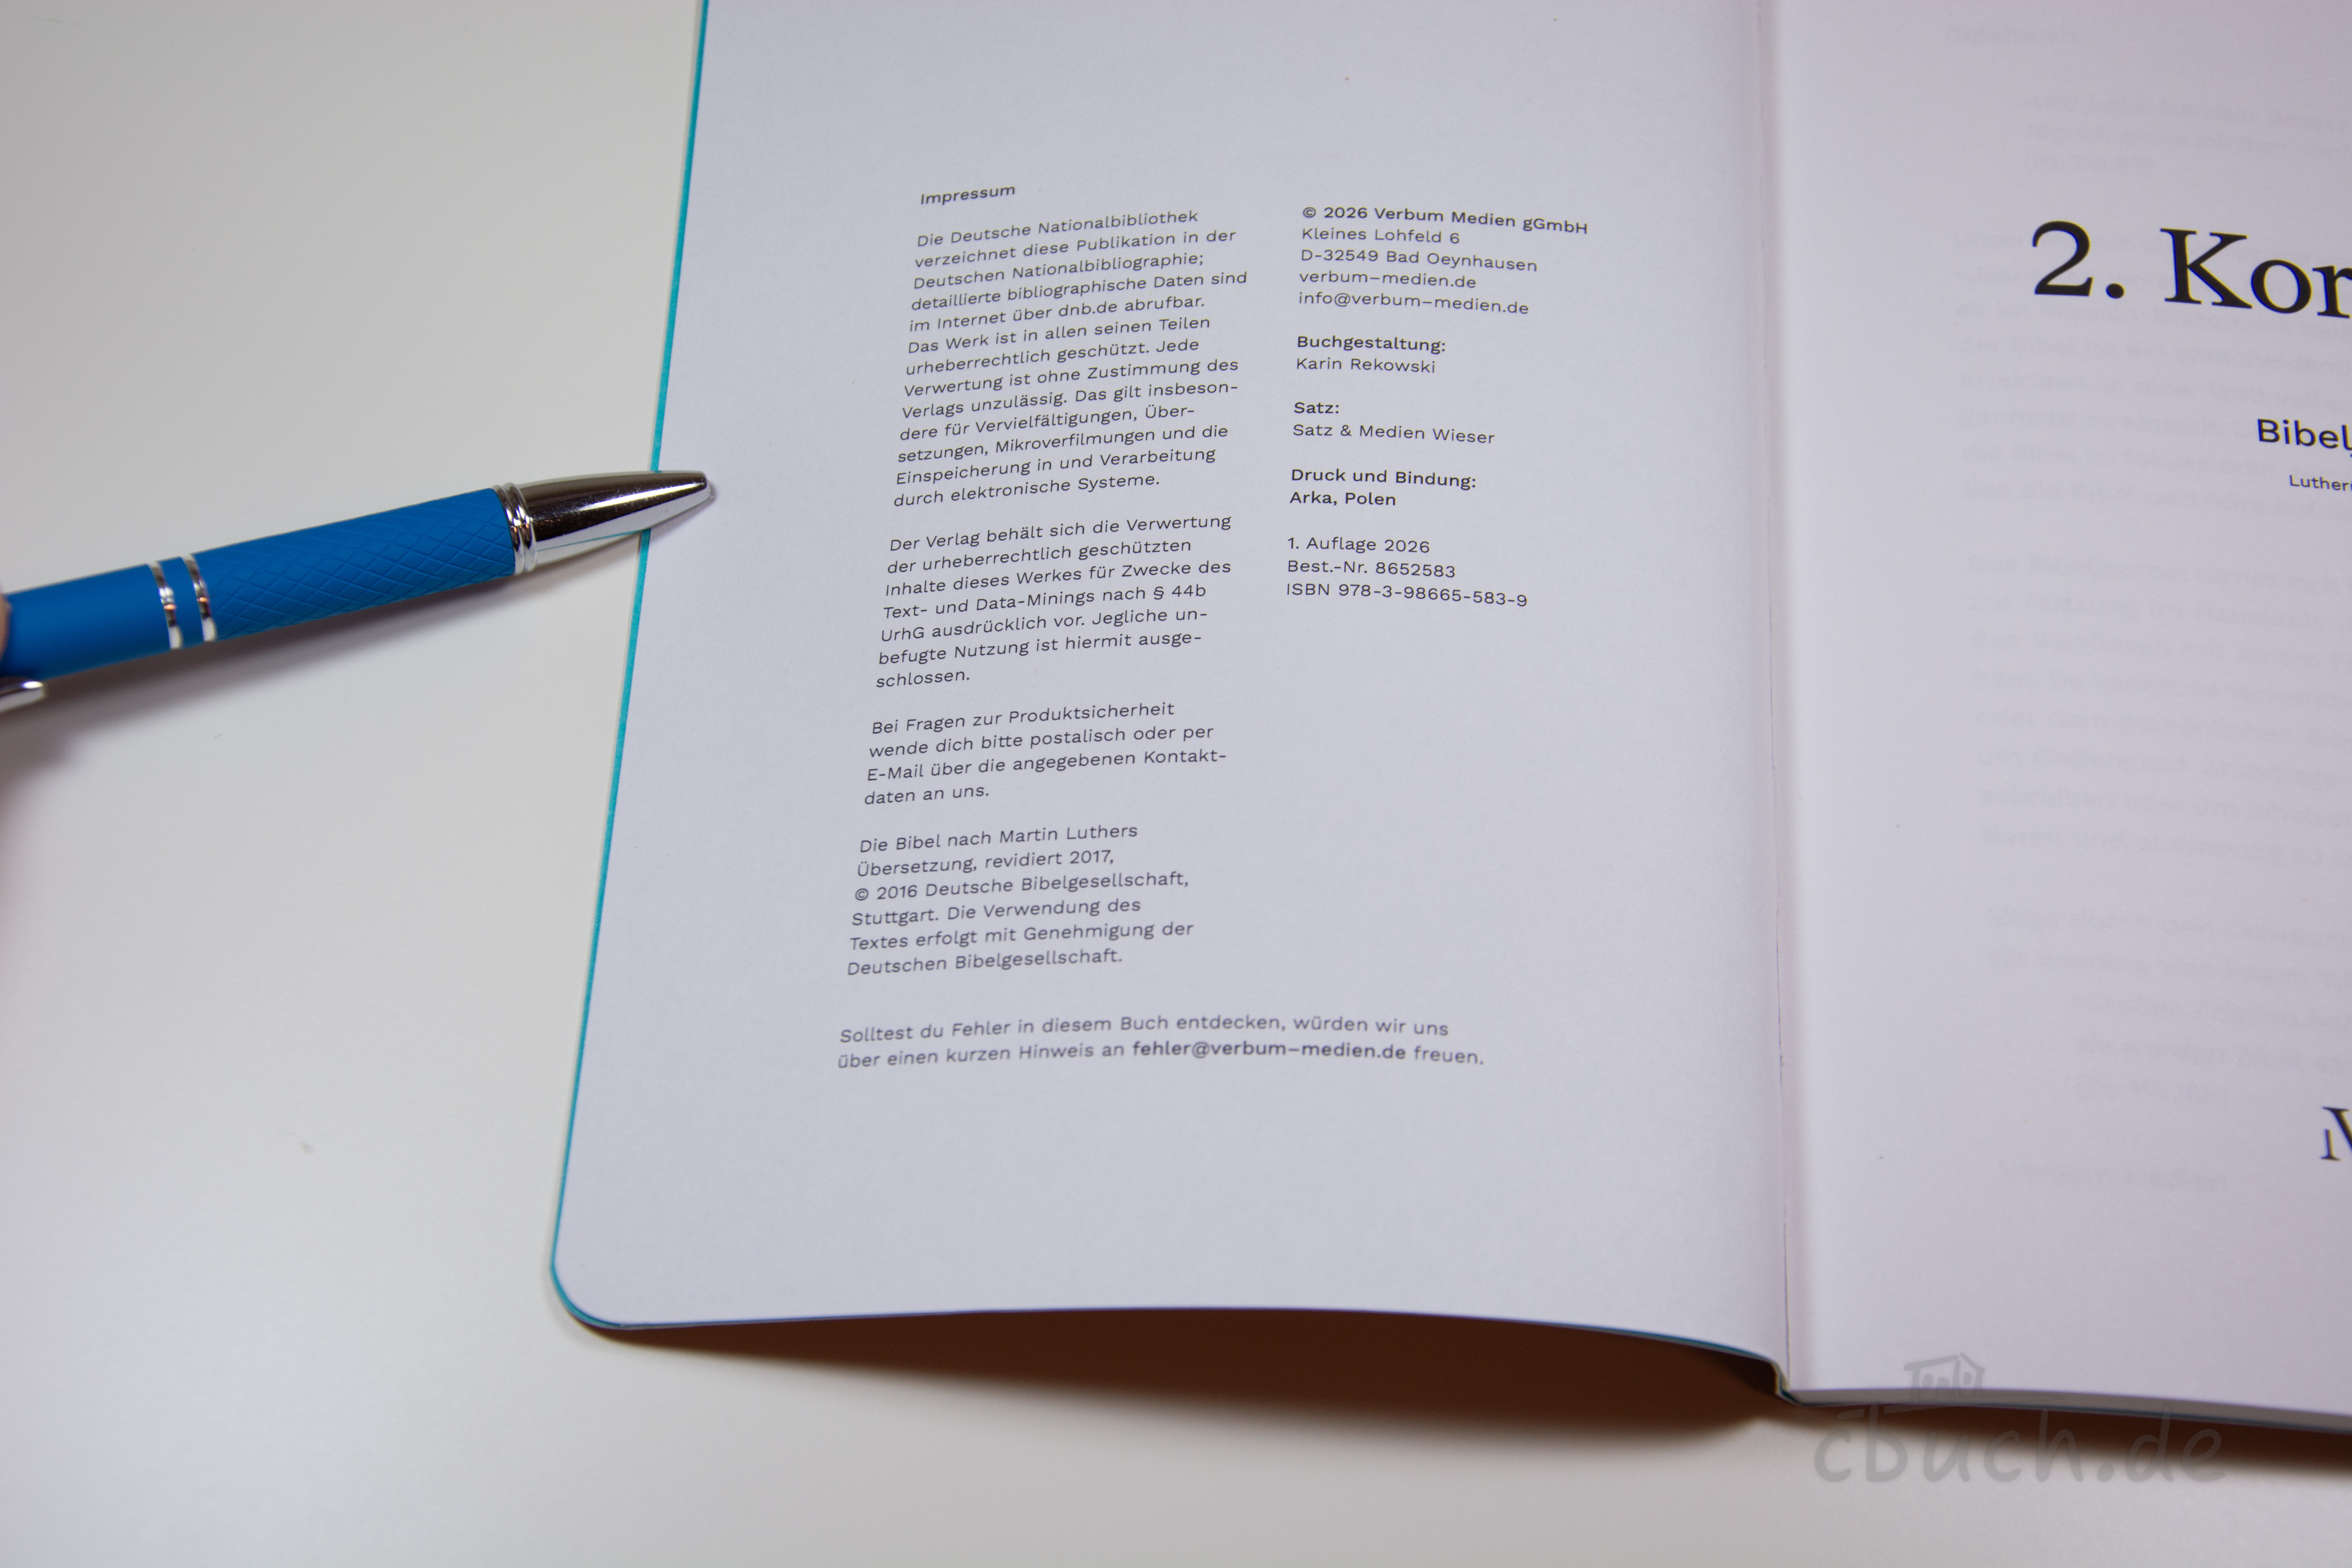 Impressum
Die Deutsche Nationalbibliothek
verzeichnet diese Publikation in der
Deutschen Nationalbibliographie;
detaillierte bibliographische Daten sind
im Internet über dnb.de abrufbar.
Das Werk ist in allen seinen Teilen
urheberrechtlich geschützt. Jede
Verwertung ist ohne Zustimmung des
Verlags unzulässig. Das gilt insbeson-
dere für Vervielfältigungen, Über-
setzungen, Mikroverfilmungen und die
Einspeicherung in und Verarbeitung
durch elektronische Systeme.
Der Verlag behält sich die Verwertung
der urheberrechtlich geschützten
Inhalte dieses Werkes für Zwecke des
Text- und Data-Minings nach § 44b
UrhG ausdrücklich vor. Jegliche un-
befugte Nutzung ist hiermit ausge-
schlossen.
Bei Fragen zur Produktsicherheit
wende dich bitte postalisch oder per
E-Mail über die angegebenen Kontakt-
daten an uns.
Die Bibel nach Martin Luthers
Übersetzung, revidiert 2017,
© 2016 Deutsche Bibelgesellschaft,
Stuttgart. Die Verwendung des
Textes erfolgt mit Genehmigung der
Deutschen Bibelgesellschaft.
© 2026 Verbum Medien gGmbH
Kleines Lohfeld 6
D-32549 Bad Oeynhausen
verbum-medien.de
info@verbum-medien.de
Buchgestaltung:
Karin Rekowski
Satz:
Satz & Medien Wieser
Druck und Bindung:
Arka, Polen
1. Auflage 2026
Best.-Nr. 8652583
ISBN 978-3-98665-583-9
Solltest du Fehler in diesem Buch entdecken, würden wir uns
über einen kurzen Hinweis an fehler@verbum-medien.de freuen.
2. Kor
Bibel
Luther
cbuch.de